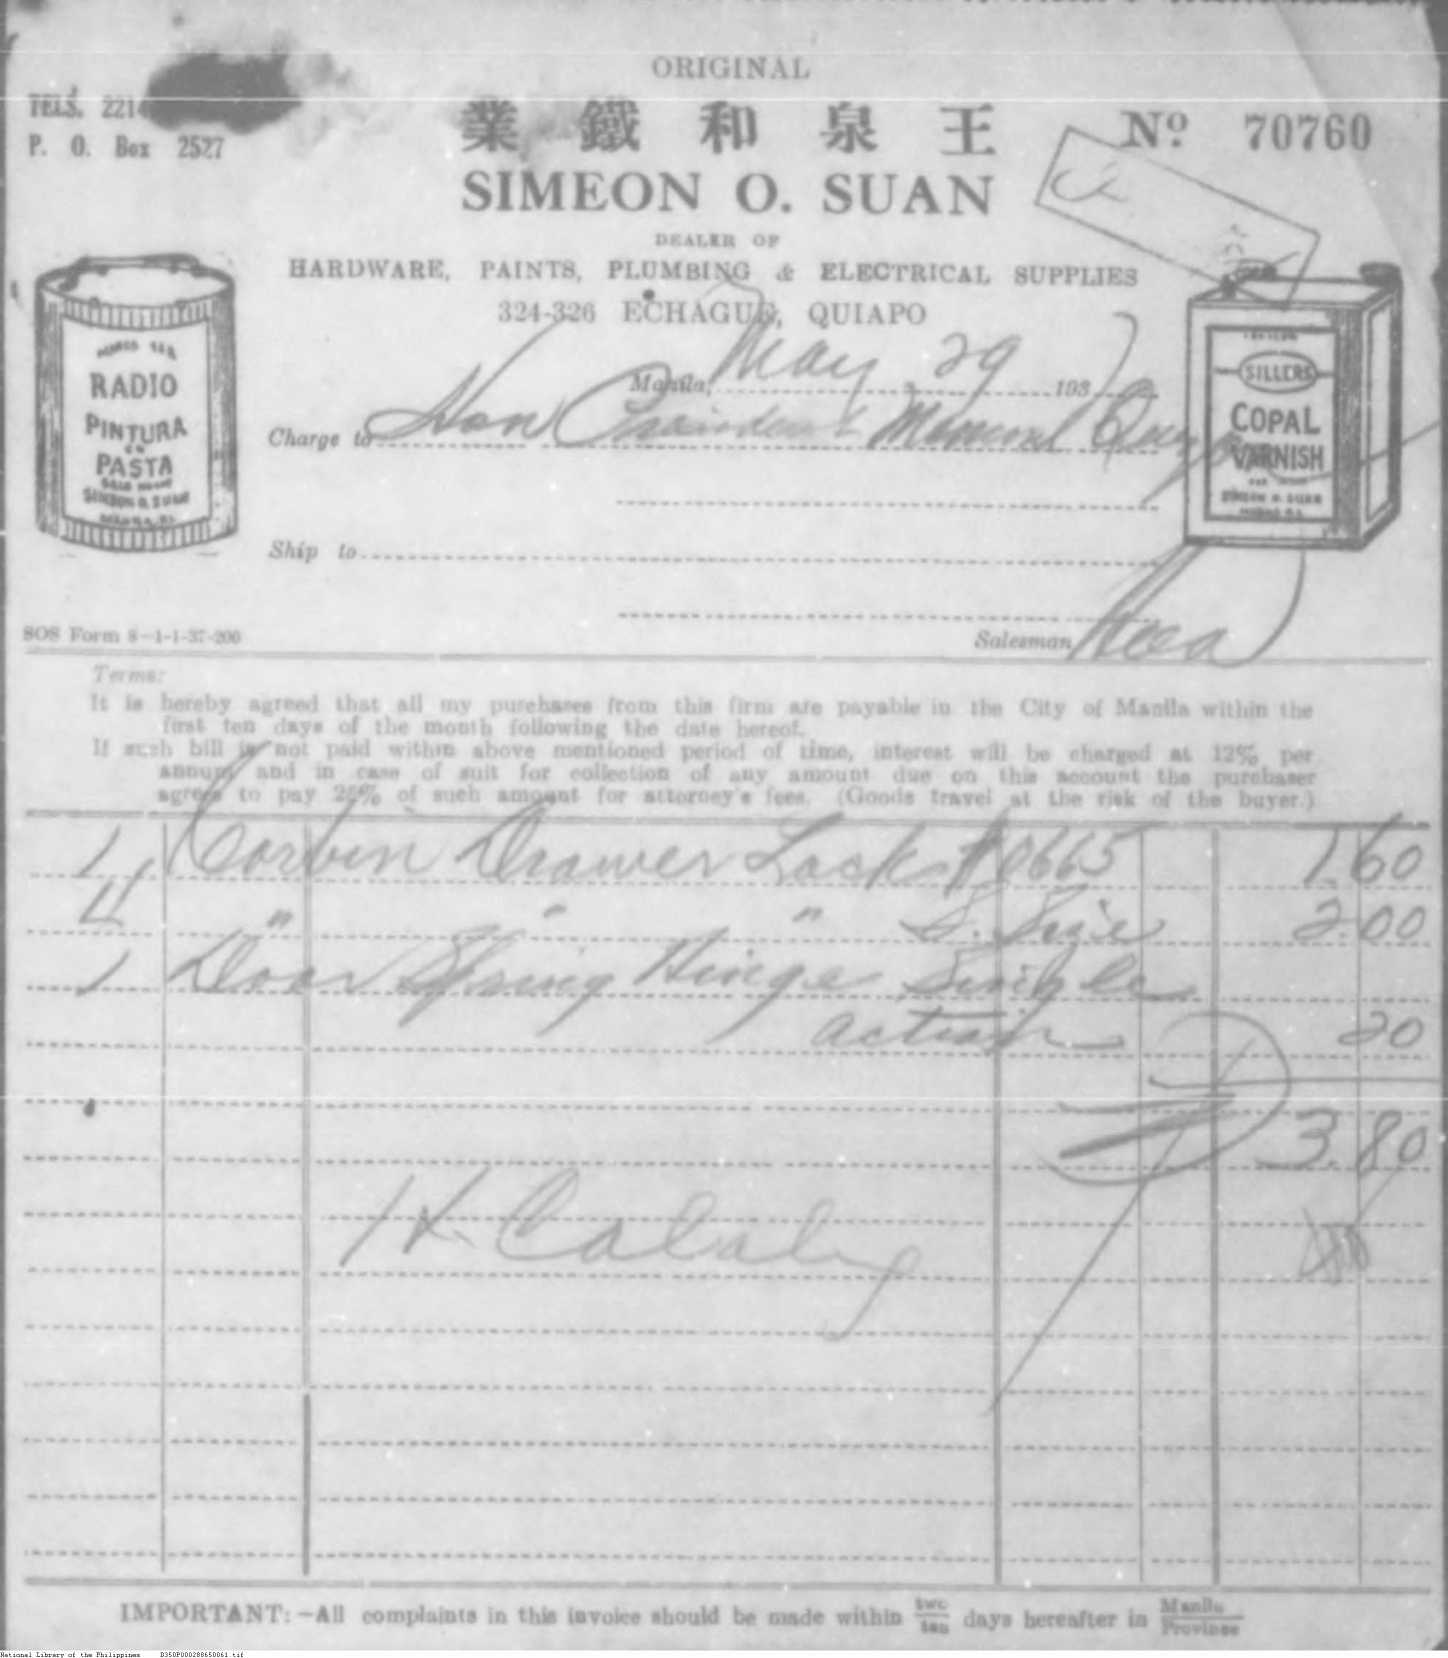 ORIGINAL
TELS. 2214
P. O. Box 2527
業 鐵 和 泉 王
Nº 70760
SIMEON O. SUAN
DEALER OF
HARDWARE, PAINTS, PLUMBING & ELECTRICAL SUPPLIES
324-326 ECHAGUE, QUIAPO
RADIO
PINTURA
EN
PASTA
SIMEON O. SUAN
MANILA, P.I.
SILLERS
COPAL
VARNISH
SIMEON O. SUAN
MANILA P.I.
Manila, May 29 1937
Charge to Hon President Manuel Quezon
Ship to
SOS Form 8-1-1-37-200
Salesman
Terms:
It is hereby agreed that all my purchases from this firm are payable in the City of Manila within the
first ten days of the month following the date hereof.
If such bill is not paid within above mentioned period of time, interest will be charged at 12% per
annum and in case of suit for collection of any amount due on this account the purchaser
agrees to pay 25% of such amount for attorney's fees. (Goods travel at the risk of the buyer.)
1 Corbin Drawer Lock #0665 1.60
4 " " " S. Size 2.00
1 Door Spring Hinge Single
action 20
3.80
IMPORTANT:—All complaints in this invoice should be made within two/ten days hereafter in Manila/Province
National Library of the Philippines B350P000288650061.tif